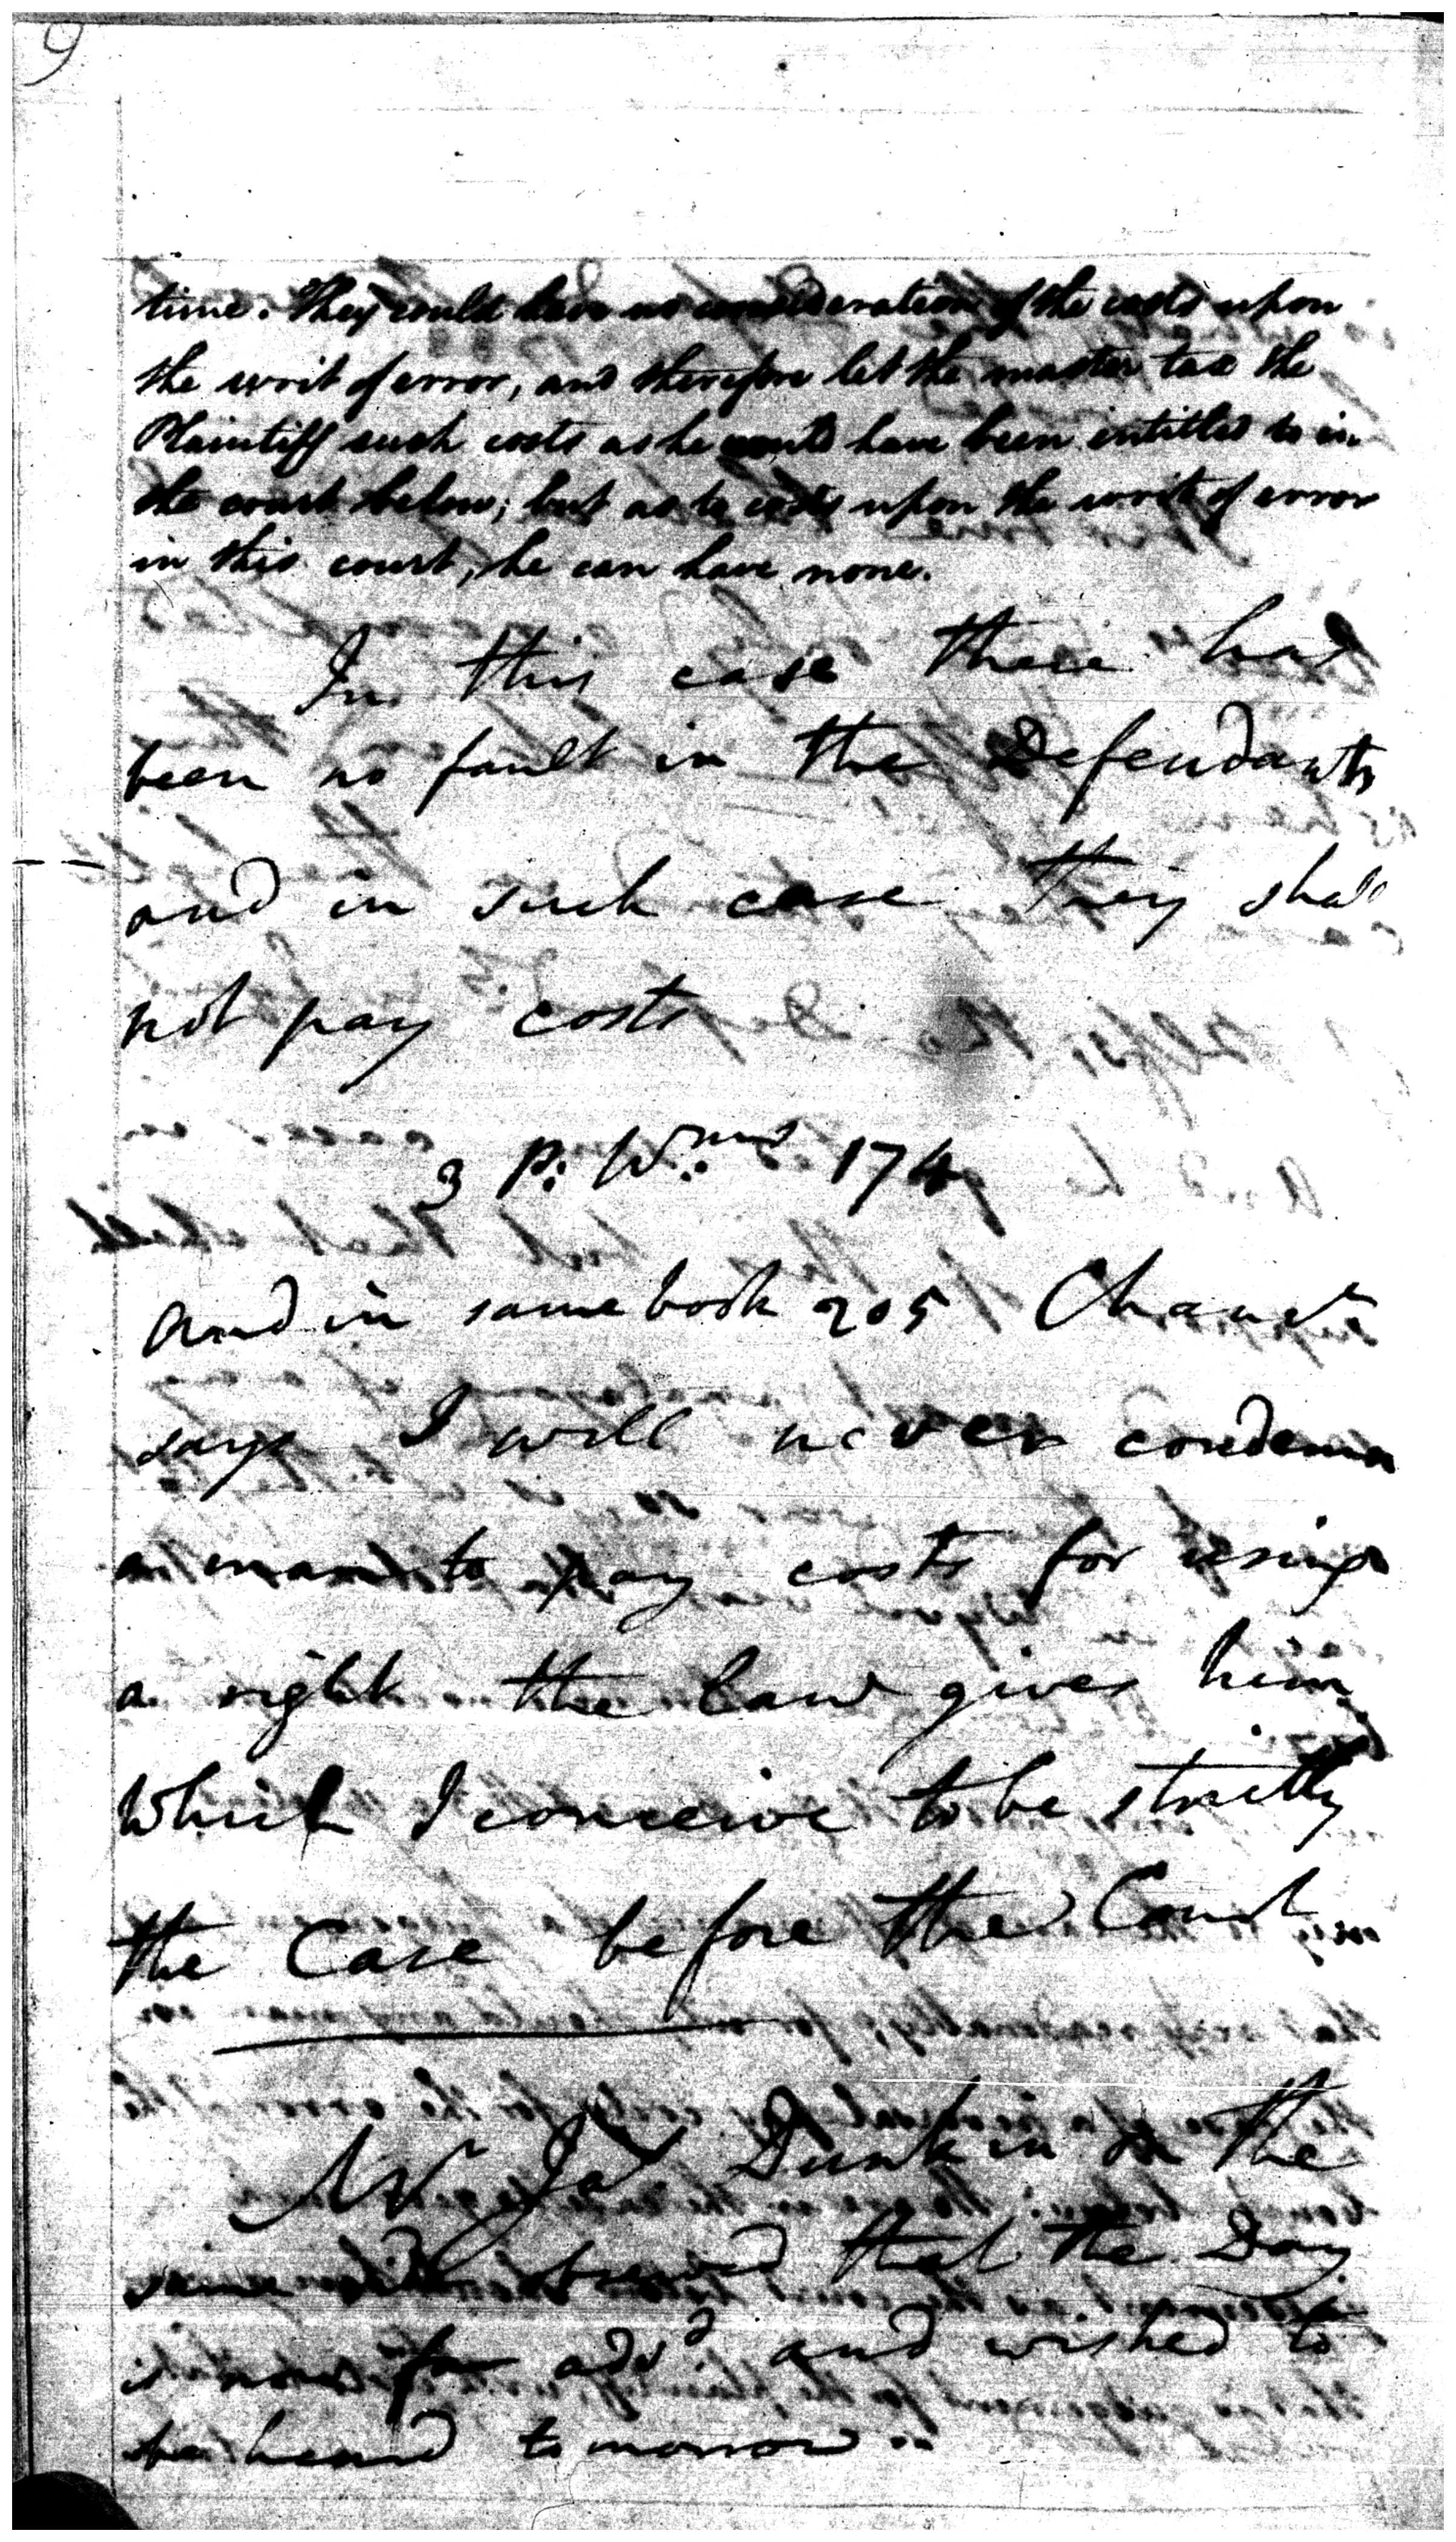 9
time. They could have no consideration of the costs upon
the writ of error, and therefore let the master tax the
Plaintiff such costs as he would have been intitled to in
the court below; but as to costs upon the writ of error
in this court, he can have none.
In this case there had
been no fault in the Defendants
and in such case they shall
not pay costs
3 P: W:ms 174
And in same book 205 Chanr
says I will never condemn
a man to pay costs for using
a right the Law gives him
Which I conceive to be strictly
the Case before the Court
Mr Jas Dunkin on the
same side observed that the Day
is now far advd and wished to
be heard tomorrow..